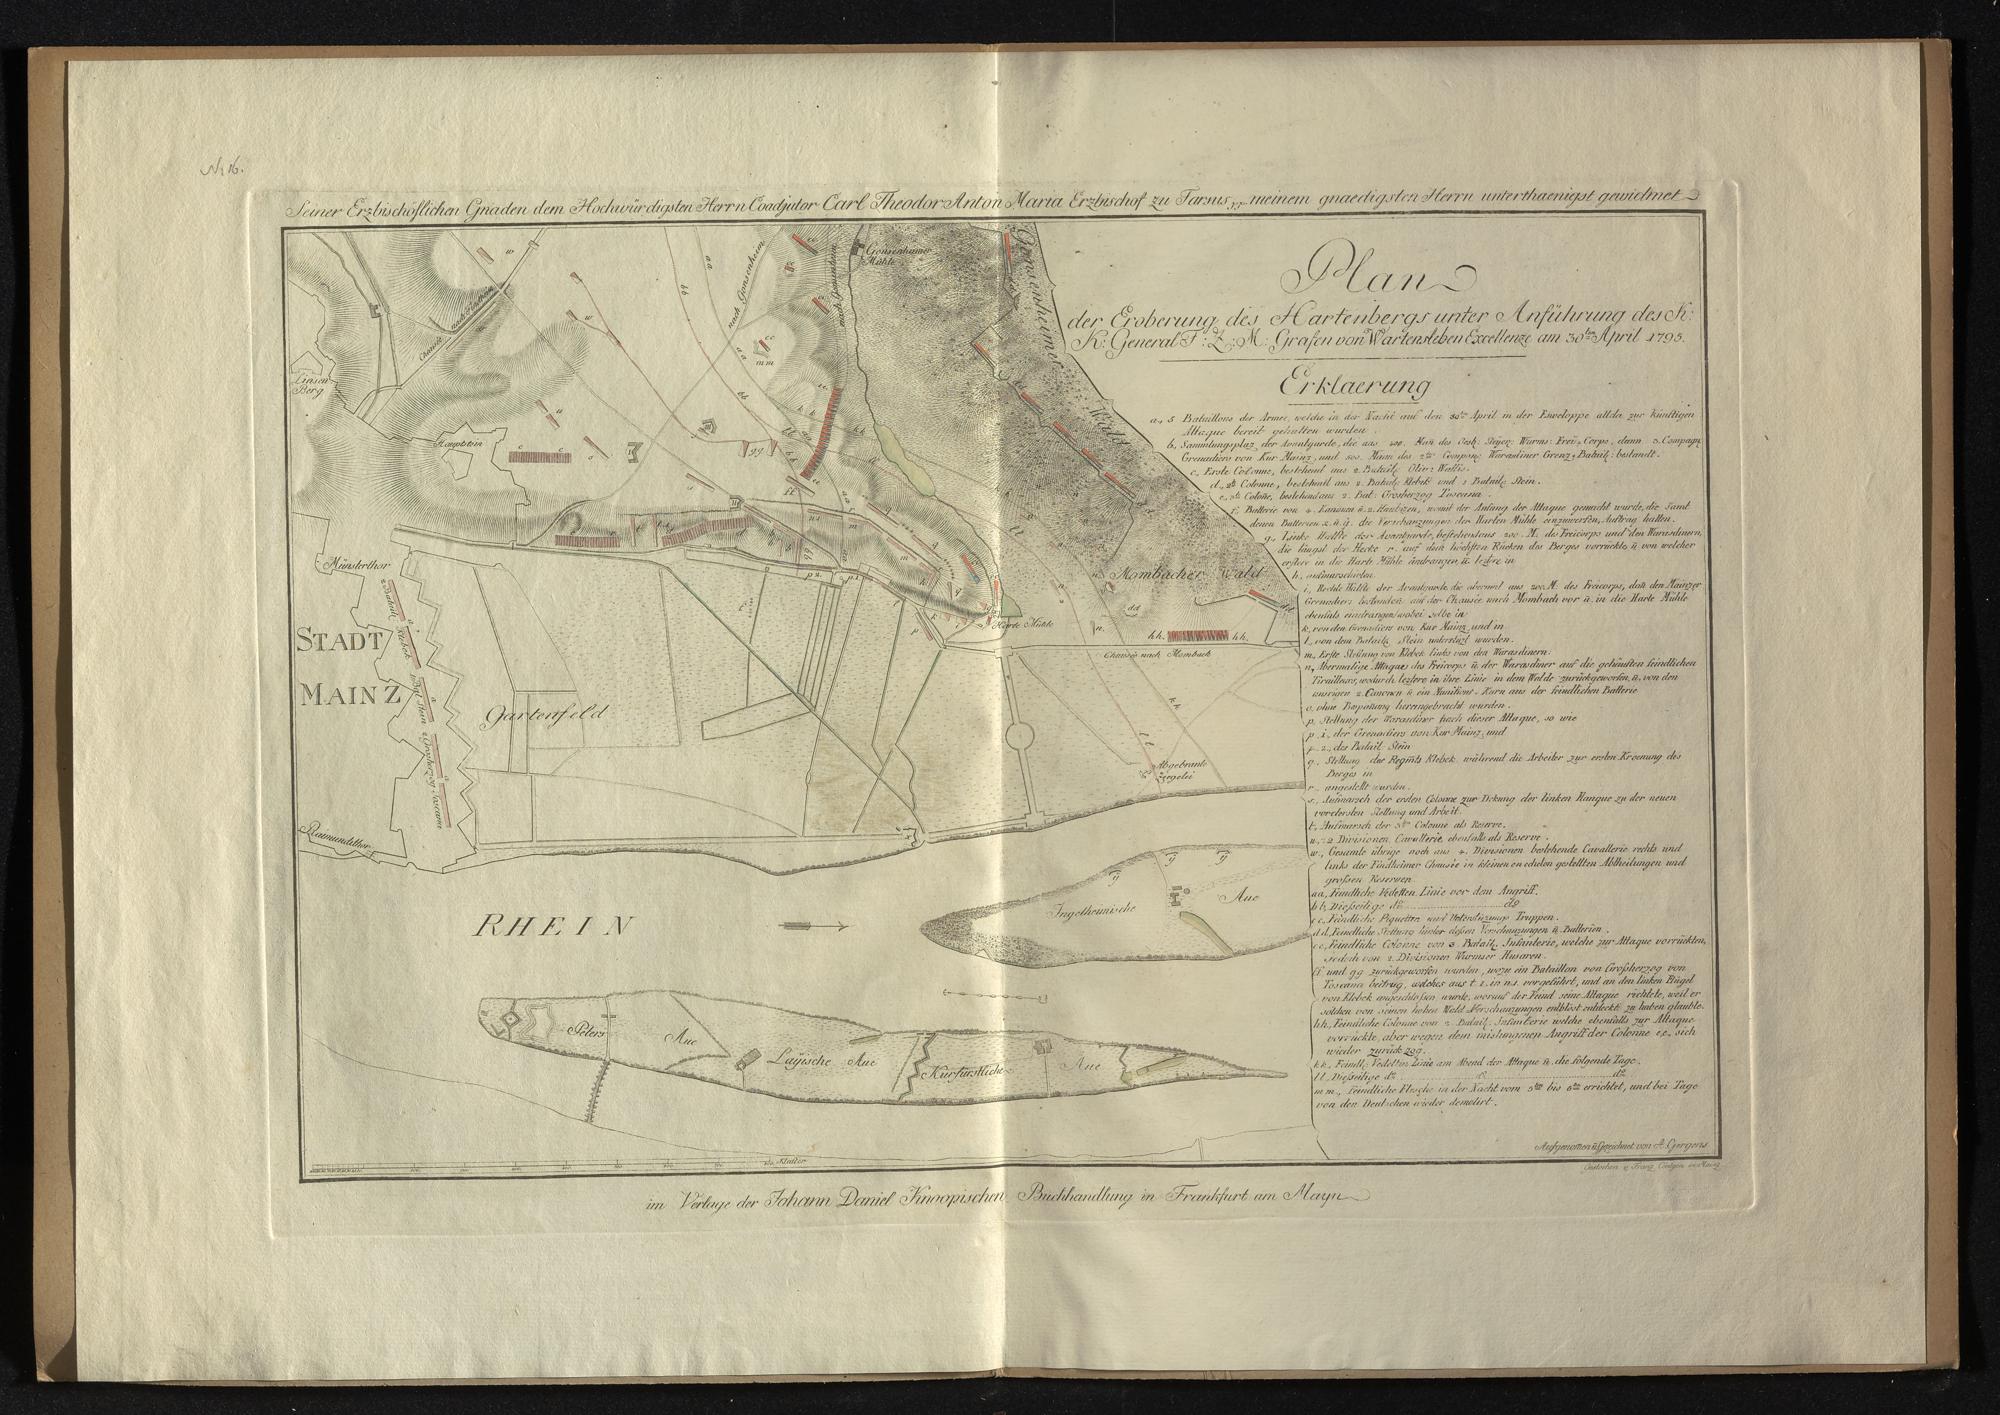 No 16.
Seiner Erzbischöflichen Gnaden dem Hochwürdigsten Herrn Coadjutor Carl Theodor Anton Maria Erzbischof zu Tarsus meinem gnaedigsten Herrn unterthaenigst gewidmet
Plan
der Eroberung des Hartenbergs unter Anführung des K:
K: General F: Z: M: Grafen von Wartensleben Excellenze am 30ten April 1795.
Erklaerung
a., 5 Bataillons der Armee, welche in der Nacht auf den 30ten April in der Enveloppe allda zur künftigen
Attaque bereit gehalten wurden.
b, Sammlungsplaz der Avantgarde, die aus 400. Man des Oesb: Steyer: Wurms: Frei-Corps, dann 3. Compagn
Grenadiers von Kur Mainz, und 500. Mann des 2ten Warasdiner Grenz-Batail: bestandt.
c, Erste Colonne, bestehend aus 2. Batail: Oliv: Wallis.
d., 2te Colonne, bestehend aus 2. Batail: Klebek und 1 Batail: Stein.
e., 3te Coloñe, bestehend aus 2. Bat: Grosherzog Toscana.
f, Batterie von 4. Kanonen ü. 2. Haubizen, womit der Anfang der Attaque gemacht wurde, die samt
denen Batterien x. ü. ÿ. die Verschanzungen der Harten Mühle einzuwerfen, Auftrag hatten.
g, Linke Hälfte der Avantgarde, bestehend aus 200. M. des Freicorps und den Warasdinern,
die längst der Hecke r. auf dem höchsten Rücken des Berges vorrückte, ü. von welcher
erstere in die Hart Mühle eindrangen, ü. leztere in
h., aufmarschirten.
i, Rechte Hälfte der Avantgarde, die abermal aus 200. M. des Freicorps, dañ den Mainzer
Grenadiers bestanden auf der Chausée nach Mombach vor ü. in die Harte Mühle
ebenfals eindrangen, wobei selbe in
k, von den Grenadiers von Kur Mainz, und in
l, von dem Batail: Stein unterstüzt wurden.
m., Erste Stellung von Klebek links von den Warasdinern.
n, Abermalige Attaque des Freicorps ü. der Warasdiner auf die gehäuften feindlichen
Tirailleurs, wodurch leztere in ihre Linie in dem Walde zurückgeworfen, ü. von den
unsrigen 2. Canonen ü. ein Munitions-Karn aus der feindlichen Batterie
o, ohne Bespañung hereingebracht wurden.
p, Stellung der Warasdiner nach dieser Attaque, so wie
p. 1., der Grenadiers von Kur Mainz, und
p. 2., des Batail: Stein
q., Stellung des Regmts Klebek, während die Arbeiter zur ersten Kroenung des
Berges in
r., angestellt wurden.
s., Aufmarsch der ersten Colonne zur Dekung der linken Flanque zu der neuen
vordersten Stellung und Arbeit.
t., Aufmarsch der 3ten Colonne als Reserve.
u., 2 Divisionen Cavallerie, ebenfalls als Reserve.
w., Gesamte übrige noch aus 4. Divisionen bestehende Cavallerie rechts und
links der Findheimer Chausée in kleinen en echelon gestellten Abtheilungen und
großen Reserven.
aa., Feindliche Vedetten Linie vor dem Angriff.
bb, Dießeitige dto do
cc., Feindliche Piquetter und Unterstüzungs Truppen.
dd, Feindliche Stellung hinter deßen Verschanzungen ü. Batterien.
ee, Feindliche Colonne von 3. Batail: Infanterie, welche zur Attaque vorrückten,
jedoch von 2. Divisionen Wurmser Husaren.
ff und gg zurückgeworfen wurden, wozu ein Bataillon von Großherzog von
Toscana beitrug, welches aus t. 2. in n.s. vorgeführt, und an den linken Flügel
von Klebek angeschloßen wurde, worauf der Feind seine Attaque richtete, weil er
solchen von seinen hohen Wald Verschanzungen entblöst entdeckt zu haben glaubte.
hh., Feindliche Colonne von 2. Batail: Infanterie welche ebenfalls zur Attaque
vorrückte, aber wegen dem mislungenen Angriff der Colonne e.e. sich
wieder zurück zog.
kk., Feindl: Vedetten Linie am Abend der Attaque ü. die folgende Tage.
ll., Dießeitige dto do
mm., Feindliche Flesche in der Nacht vom 5ten bis 6ten errichtet, und bei Tage
von den Deutschen wieder demolirt.
Aufgenomen ü. Gezeichnet von A. Gergens
Gestochen v. Franz Coentgen in Mainz
Gonsenheimer
Mühle
nach Gonsenheim
nach Gonsenheim
Gonsenheimer
Wald
Chausée nach
Linsen
Berg
Hauptstein
Münsterthor
STADT
MAINZ
Batail: Klebek
Bat: Stein
Grosherzog Toscana
Gartenfeld
Raimundithor
Harte Mühle
Mombacher Wald
Chausée nach Mombach
hh. hh.
Abgebrante
Ziegelei
RHEIN
Ingelheimische Aue
Peters Aue
Layische Aue
Kurfürstliche Aue
Klafter
im Verlage der Johann Daniel Knoopischen Buchhandlung in Frankfurt am Mayn